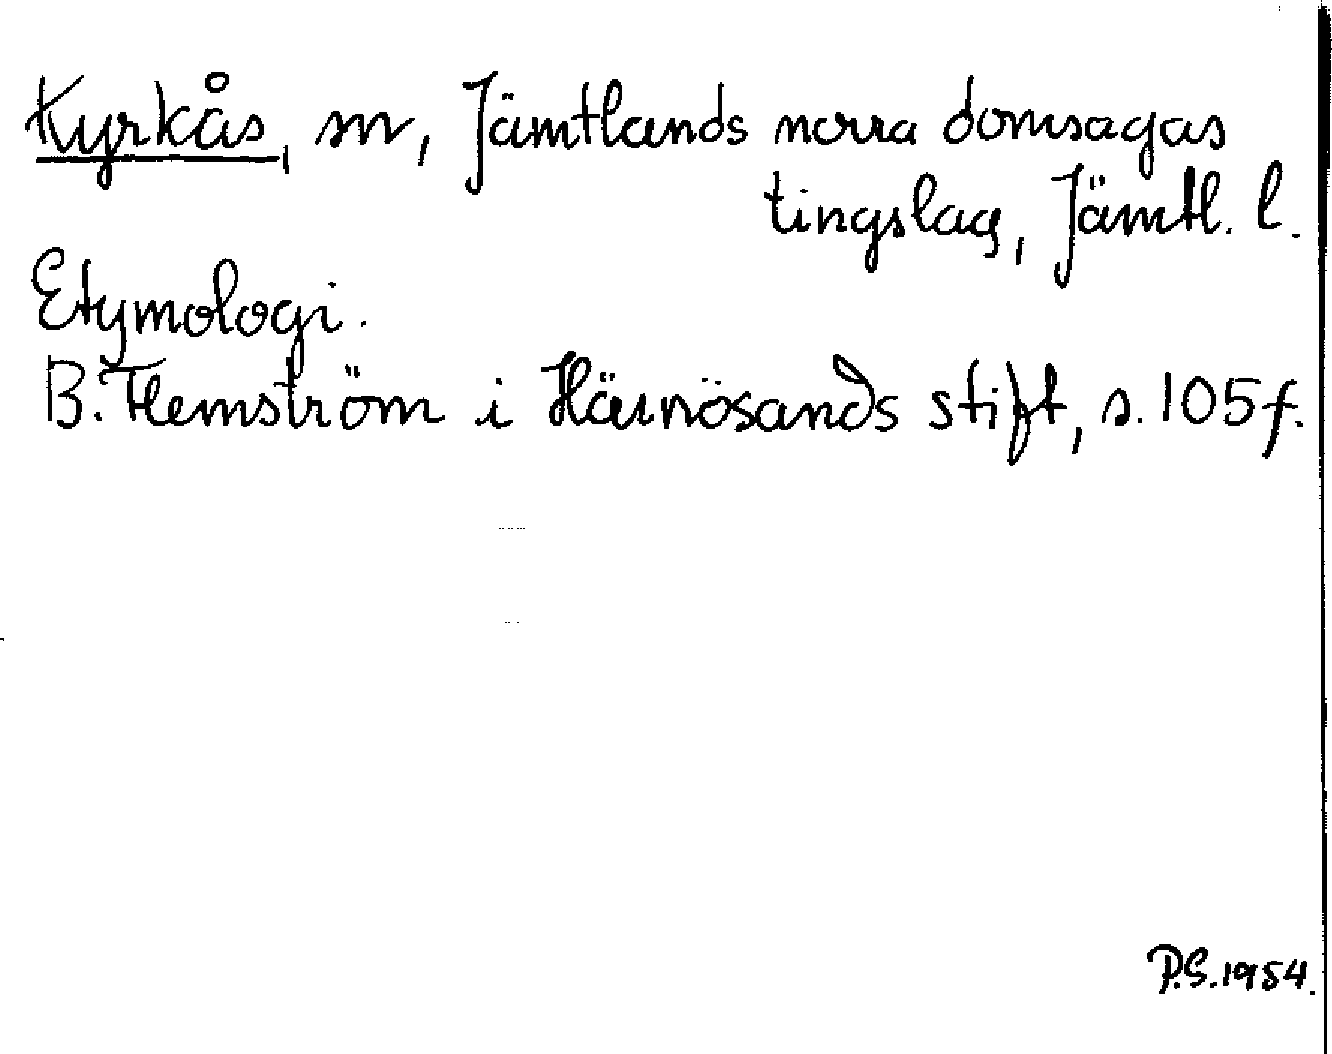 Kyrkås, sn, Jämtlands norra domsagas
tingslag, Jämtl. l.
Etymologi.
B. Flemström i Härnösands stift, s. 105 f.
P.S. 1954.